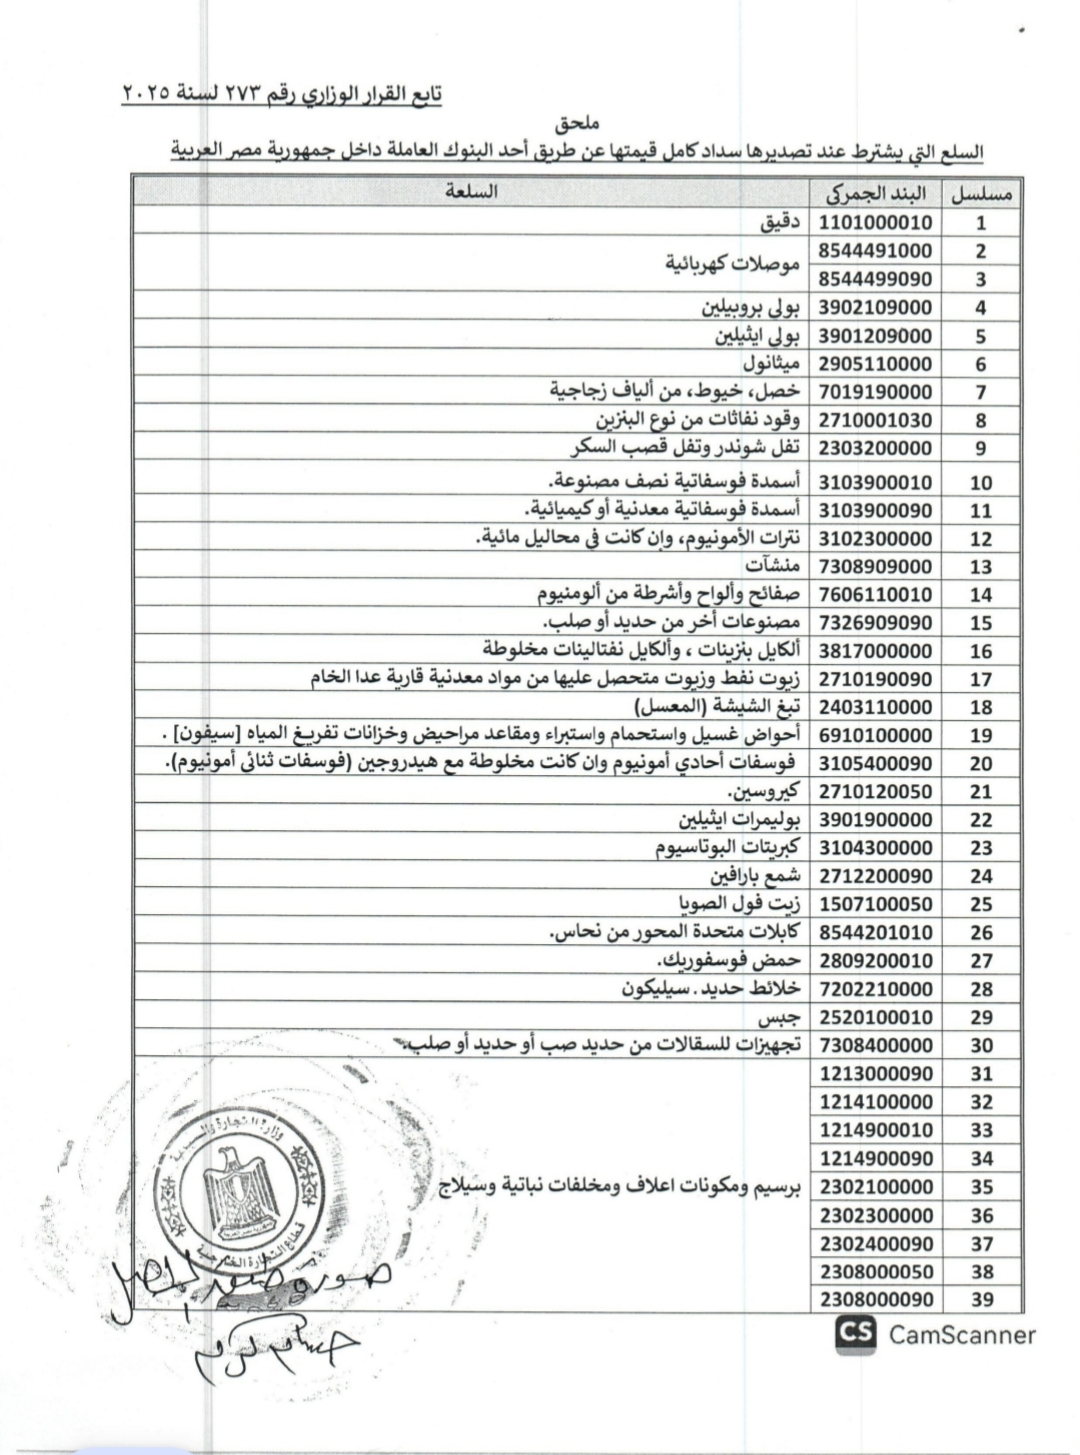 تابع القرار الوزاري رقم ٢٧٣ لسنة ٢٠٢٥
ملحق
السلع التي يشترط عند تصديرها سداد كامل قيمتها عن طريق أحد البنوك العاملة داخل جمهورية مصر العربية
مسلسل البند الجمركي السلعة
1 1101000010 دقيق
2 8544491000 موصلات كهربائية
3 8544499090
4 3902109000 بولى بروبيلين
5 3901209000 بولى ايثيلين
6 2905110000 ميثانول
7 7019190000 خصل، خيوط، من ألياف زجاجية
8 2710001030 وقود نفاثات من نوع البنزين
9 2303200000 تفل شوندر وتفل قصب السكر
10 3103900010 أسمدة فوسفاتية نصف مصنوعة.
11 3103900090 أسمدة فوسفاتية معدنية أو كيميائية.
12 3102300000 نترات الأمونيوم، وإن كانت في محاليل مائية.
13 7308909000 منشآت
14 7606110010 صفائح وألواح وأشرطة من ألومنيوم
15 7326909090 مصنوعات أخر من حديد أو صلب.
16 3817000000 ألكايل بنزينات ، وألكايل نفتالينات مخلوطة
17 2710190090 زيوت نفط وزيوت متحصل عليها من مواد معدنية قارية عدا الخام
18 2403110000 تبغ الشيشة (المعسل)
19 6910100000 أحواض غسيل واستحمام واستبراء ومقاعد مراحيض وخزانات تفريغ المياه [سيفون] .
20 3105400090 فوسفات أحادي أمونيوم وان كانت مخلوطة مع هيدروجين (فوسفات ثنائى أمونيوم).
21 2710120050 كيروسين.
22 3901900000 بوليمرات ايثيلين
23 3104300000 كبريتات البوتاسيوم
24 2712200090 شمع بارافين
25 1507100050 زيت فول الصويا
26 8544201010 كابلات متحدة المحور من نحاس.
27 2809200010 حمض فوسفوريك.
28 7202210000 خلائط حديد . سيليكون
29 2520100010 جبس
30 7308400000 تجهيزات للسقالات من حديد صب أو حديد أو صلب.
31 1213000090
32 1214100000
33 1214900010
34 1214900090
35 2302100000 برسيم ومكونات اعلاف ومخلفات نباتية وسيلاج
36 2302300000
37 2302400090
38 2308000050
39 2308000090
وزارة التجارة
قطاع التجارة الخارجية
صورة طبق الأصل
حسام كرم
CS CamScanner